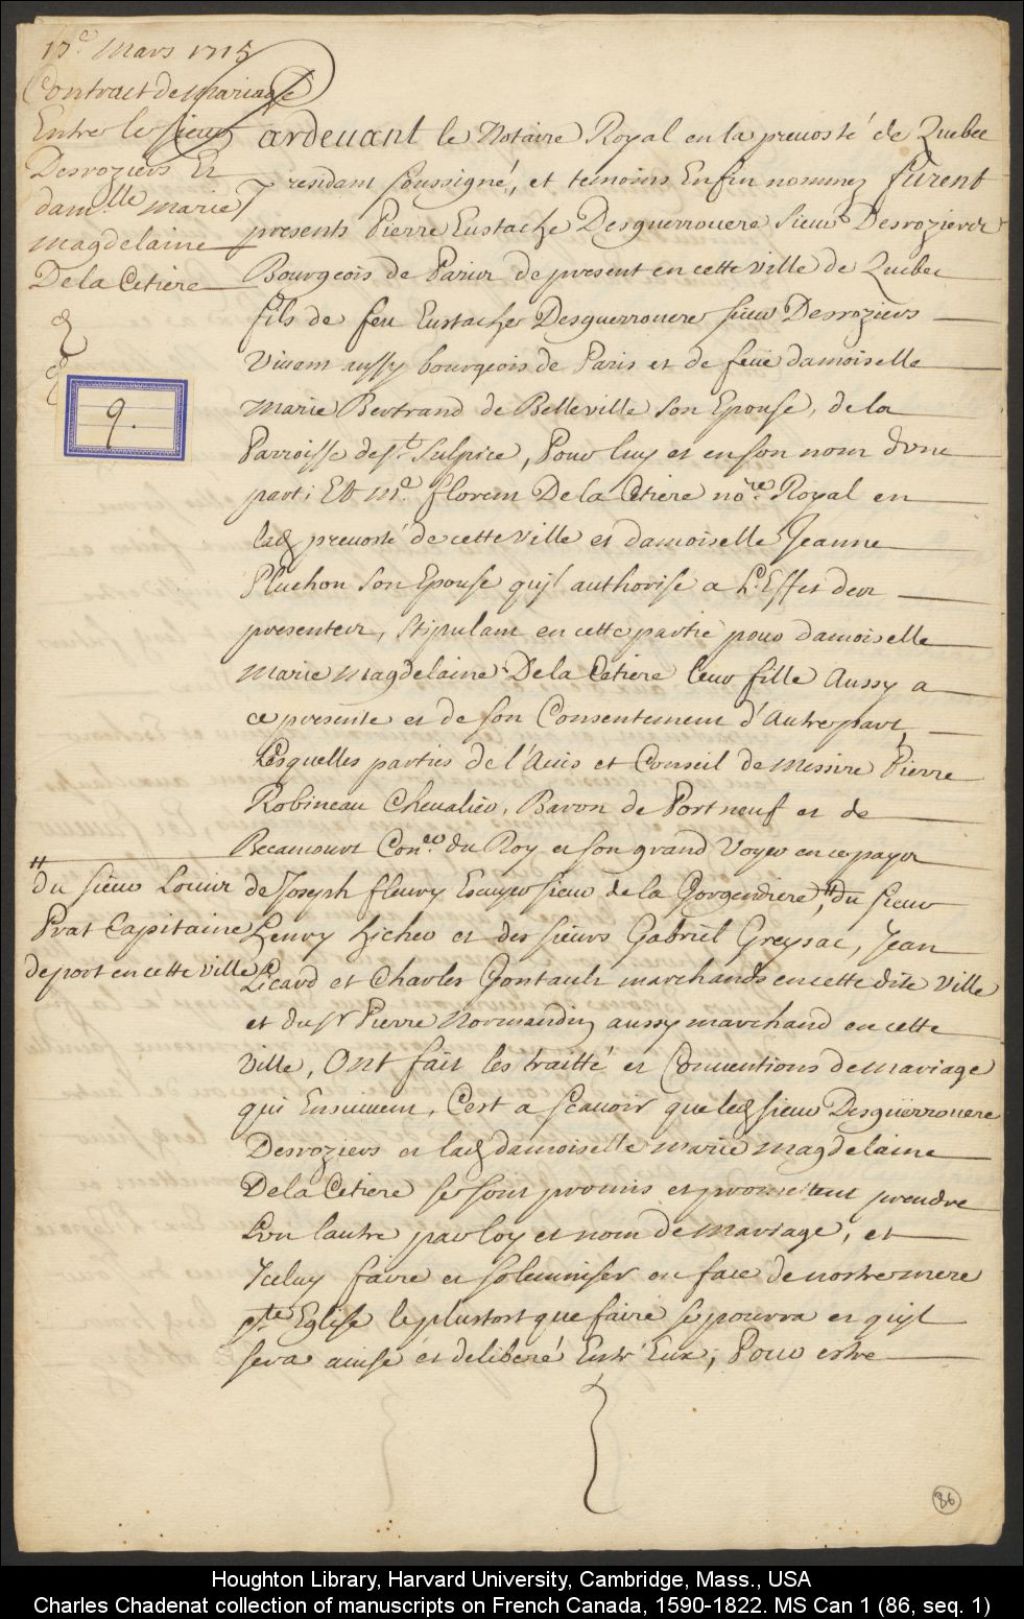 17e. Mars 1715
Contract de mariage
Entre le sieur
Desroziers Et
damlle. marie
magdelaine
De la Cetiere
9.
Pardeuant le Notaire Royal en la preuosté de Quebec
residant soussigné, et temoins Enfin nommez furent
presents Pierre Eustache Desguerrouere Sieur Desroziers
Bourgeois de Paris de present en cette ville de Quebec
fils de feu Eustache Desguerrouere sieur Desroziers
Viuant aussy bourgeois de Paris et de feüe damoiselle
Marie Bertrand de Belleville son Epouse, de la
Parroisse de st. Sulpice, Pour luy et en son nom dvne
part; Et Me. florent De la Cetiere nore. Royal en
lad preuosté de cette ville et damoiselle Jeanne
Pluchon son Epouse qu'jl authorise a L'Effet des
presentes, stipulant en cette partie pour damoiselle
Marie Magdelaine De la Cetiere leur fille Aussy a
ce presente et de son Consentement d'Autre part,
Lesquelles parties de l'Auis et Conseil de Messire Pierre
Robineau Cheualier, Baron de Portneuf et de
Becancourt Coner. du Roy et son grand Voyer en ce payis
de Joseph fleury Escuyer sieur de la Gorgendiere, # du sieur
# du sieur Louis
Prat Capitaine
de port en cette ville
Henry hicher et des sieurs Gabriel Greysac, Jean
Picard et Charles Gontault marchands en cette dite Ville
et du sr Pierre Normandin aussy marchand en cette
ville, Ont fait les traitté et Conuentions de mariage
qui Ensuiuent, C'est a scauoir que led sieur Desguerrouere
Desroziers et lad damoiselle Marie Magdelaine
De la Cetiere se sont promis et promettent prendre
L'vn l'autre par loy et nom de Mariage, et
Jceluy faire et solemniser en face de nostre mere
ste Eglise le plustost que faire se pourra et qu'jl
sera auisé et deliberé Entr'Eux; Pour estre
86
Houghton Library, Harvard University, Cambridge, Mass., USA
Charles Chadenat collection of manuscripts on French Canada, 1590-1822. MS Can 1 (86, seq. 1)